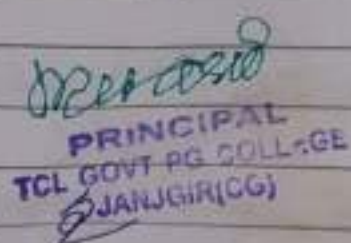 PRINCIPAL
TCL GOVT PG COLLEGE
JANJGIR(CG)